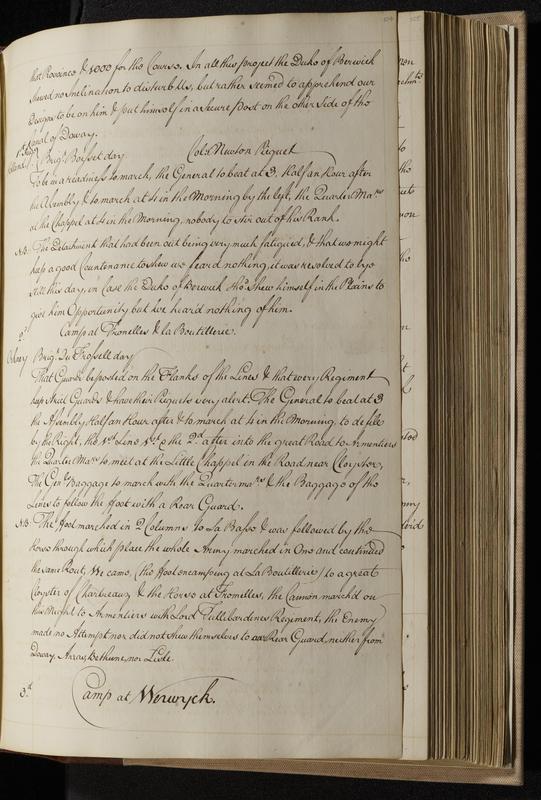 that Province & 1000 for the Course. In all this project the Duke of Berwick
shewed no Inclination to disturb Us, but rather seemed to apprehend our
Designs to be on him & put himself in a secure Post on the other side of the
Canal of Doway.
Brigr. Boisset day Colo. Newton Piquet
To be in a readiness to march, the General to beat at 3, half an hour after
the Assembly & to march at 4 in the Morning by the left, the Quarter Mars.
at the Chappel at 4 in the Morning, nobody to stir out of his Rank.
NB. The Detachment that had been out being very much fatigued, & that we might
keep a good Countenance to shew we fear'd nothing, it was resolved to lye
still this day, in Case the Duke of Berwick shod. shew himself in the Plains to
give him Opportunity but we hear'd nothing of him.
2d. Camp at Fromelles & la Boutillerie.
Brigr. Du Trossell day
That Guards be posted on the Flanks of the Lines & that every Regiment
keep strict Guards & have their Piquets very alert. The General to beat at 3
the Assembly half an hour after & to march at 4 in the Morning to defile
by the Right, the 1st Line 1st & the 2d. after into the great Road to Armentiers
the Quarter Mars. to meet at the Little Chappel in the Road near Cloyster,
The Genls. Baggage to march with the Quartermars. & the Baggage of the
Lines to follow the foot with a Rear Guard.
NB. The foot marched in 2 Columns to La Basse & was followed by the
Horse through which place the whole Army marched in One and continued
the same Rout, We came, (the foot encamping at La Boutillerie) to a great
Cloyster of Chartreaux & the Horse at Fromelles, the Cannon march'd on
this Night to Armentiers with Lord Tullibardines Regiment, the Enemy
made no Attempt nor did not shew themselves to our Rear Guard, neither from
Doway, Arras, Bethune, nor Lisle.
3d. Camp at Werwyck.